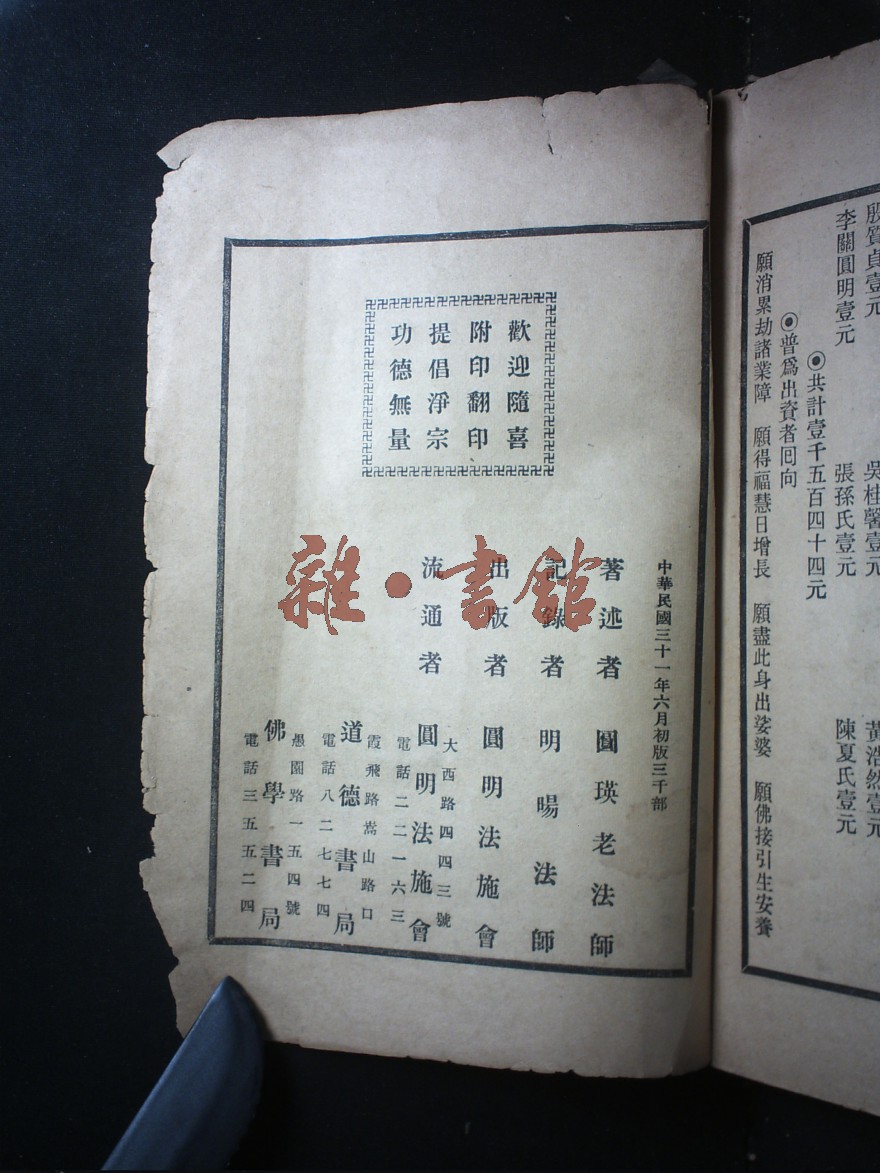 殷質貞壹元
吳桂馨壹元
黃浩然壹元
李關圓明壹元
張孫氏壹元
陳夏氏壹元
⦿共計壹千五百四十四元
⦿普爲出資者回向
願消累劫諸業障　願得福慧日增長　願盡此身出娑婆　願佛接引生安養
歡迎隨喜
附印翻印
提倡淨宗
功德無量
中華民國三十一年六月初版三千部
著述者　圓瑛老法師
記錄者　明暘法師
出版者　圓明法施會
流通者
大西路四四三號
圓明法施會
電話二二一六三
霞飛路嵩山路口
道德書局
電話八二七七四
愚園路一五四號
佛學書局
電話三五五二四
雜·書館